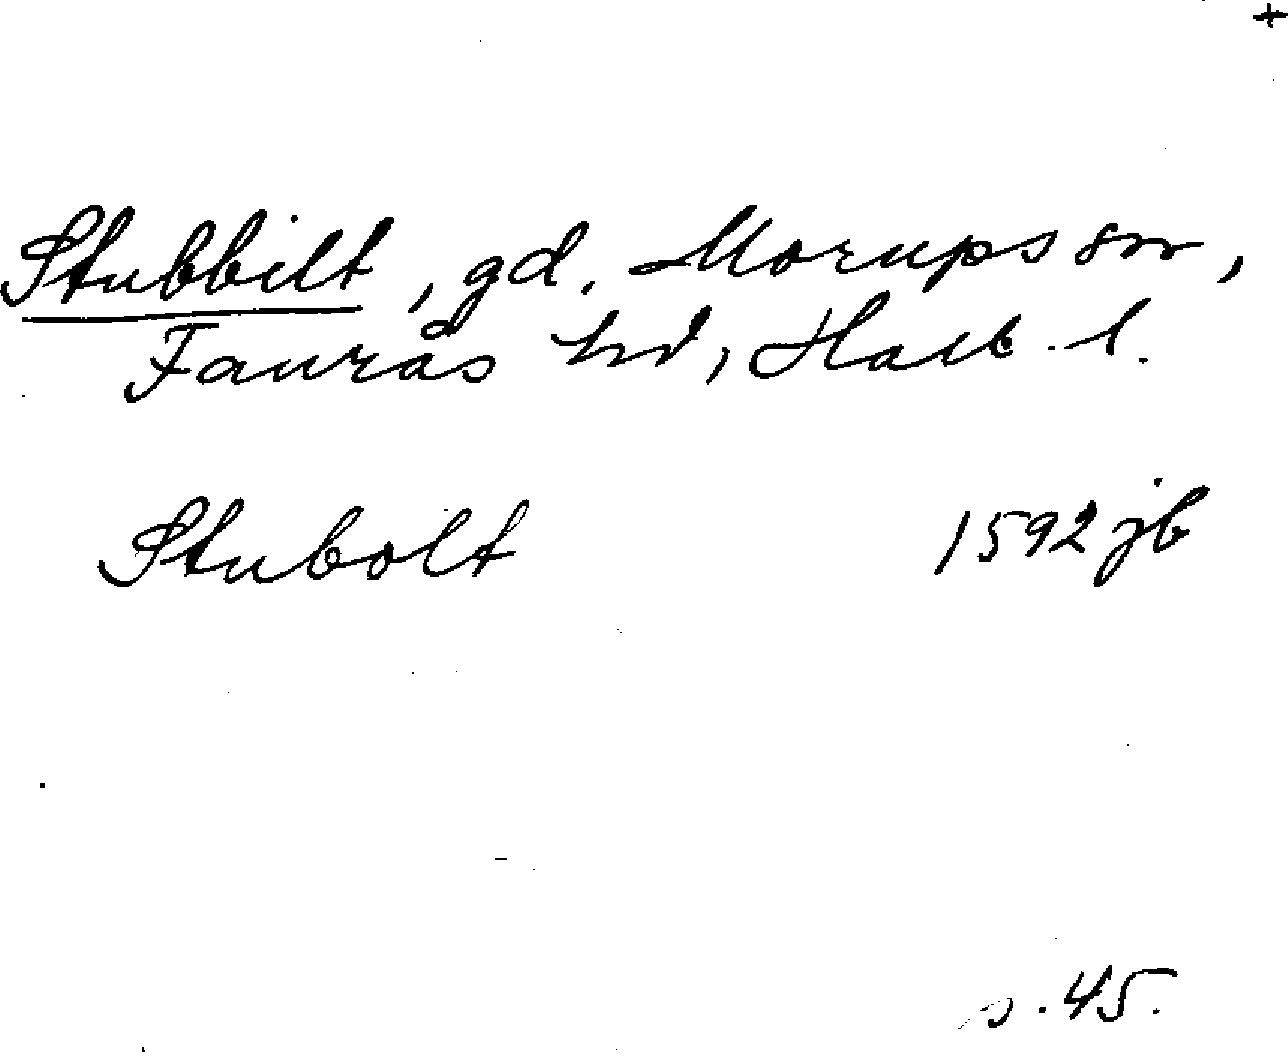 +
Stubbilt, gd. Morups sn,
Faurås hd, Hall. l.
Stubolt 1592 jb
s. 45.